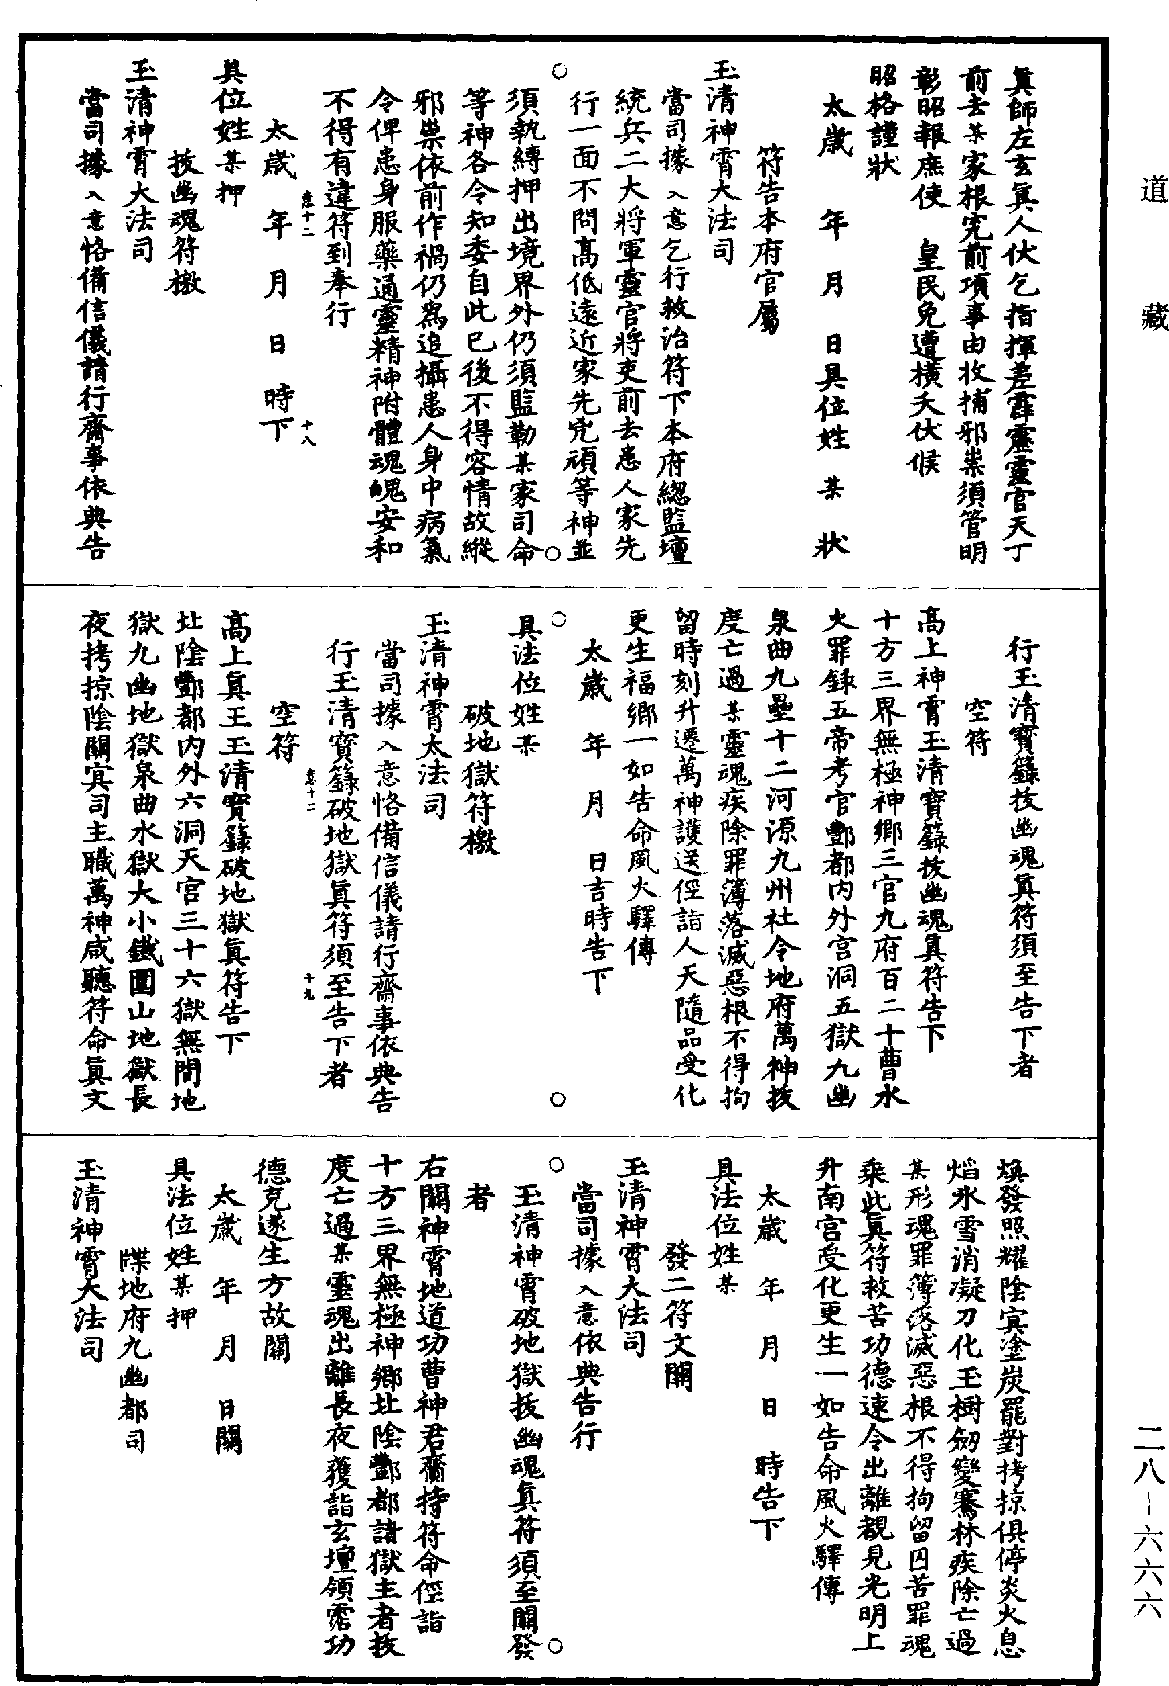 道藏
眞師左玄眞人伏乞指揮差霹靂靈官天丁
前去某家根究前項事由收捕邪祟須管明
彰昭報庶使　皇民免遭橫夭伏候
昭格謹狀
太歲　年　月　日具位姓　某　狀
符告本府官屬
玉清神霄大法司
當司據入意乞行救治符下本府總監壇
統兵二大將軍靈官將吏前去患人家先
行一面不問高低遠近家先兇頑等神並
須執縛押出境界外仍須監勒某家司命
等神各令知委自此已後不得容情故縱
邪祟依前作禍仍爲追攝患人身中病氣
令俾患身服藥通靈精神附體魂魄安和
不得有違符到奉行
太歲　年　月　日　時下
具位姓某押
拔幽魂符檄
玉清神霄大法司
當司據入意恪備信儀請行齋事依典告
行玉清寶籙拔幽魂眞符須至告下者
空符
高上神霄玉清寶籙拔幽魂眞符告下
十方三界無極神鄉三官九府百二十曹水
火罪錄五帝考官酆都內外宮洞五獄九幽
泉曲九壘十二河源九州社令地府萬神拔
度亡過某靈魂疾除罪簿落滅惡根不得拘
留時刻升遷萬神護送徑詣人天隨品受化
更生福鄉一如告命風火驛傳
太歲　年　月　日吉時告下
具法位姓某
破地獄符檄
玉清神霄大法司
當司據入意恪備信儀請行齋事依典告
行玉清寶籙破地獄眞符須至告下者
空符
高上眞王玉清寶籙破地獄眞符告下
北陰酆都內外六洞天宮三十六獄無間地
獄九幽地獄泉曲水獄大小鐵圍山地獄長
夜拷掠陰關冥司主職萬神咸聽符命眞文
煥發照耀陰冥塗炭罷對拷掠俱停炎火息
焰氷雪消凝刀化玉樹劒變騫林疾除亡過
某形魂罪簿落滅惡根不得拘留囚苦罪魂
乘此眞符救苦功德速令出離覩見光明上
升南宮受化更生一如告命風火驛傳
太歲　年　月　日　時告下
具法位姓某
發二符文關
玉清神霄大法司
當司據入意依典告行
玉清神霄破地獄拔幽魂眞符須至關發
者
右關神霄地道功曹神君齎持符命徑詣
十方三界無極神鄉北陰酆都諸獄主者拔
度亡過某靈魂出離長夜獲詣玄壇領霑功
德克遂生方故關
太歲　年　月　日關
具法位姓某押
牒地府九幽都司
玉清神霄大法司
二八－六六六